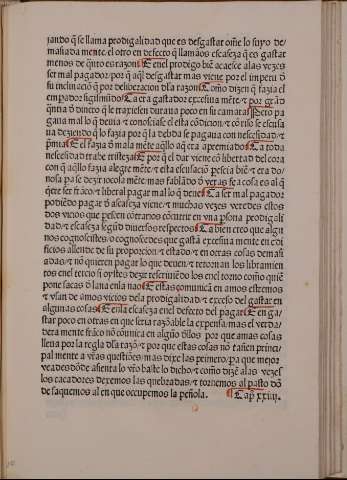 zando q̃ se llama prodigalidad que es desgastar om̃e lo suyo de
masiada mente. el otro en defecto q̃ llamãos escaseza q̃ es gastar
menos de q̃nto es razon ¶ E en el prodigo biẽ acaesce alas vezes
ser mal pagador/ por q̃ aq̃l desgastar mas viene por el imperu d̃
su inclinaciõ q̃ por deliberacion dla razon ¶ Como dizen q̃ fazia el
enpador sigismũdo ¶ Ca era gastador excesiua mẽte/ ⁊ por grãd
q̃ntia d̃ dinero q̃ le traxiesen duraua poco en su camara ¶ Pero pa
gaua mal lo q̃ deuia ⁊ conosciase el esta cõdicion/ ⁊ cõ riso se escusa
ua deziendo q̃ lo fazia por q̃ la debda se pagaua con necesidad/ ⁊
p̃mia ¶ E el fazia d̃ mala mẽte aq̃llo aq̃ era apremiado ¶ Ca toda
necesidad trahe tristeza ¶ E por q̃ el dar viene cõ libertad del cora
con q̃ aq̃llo fazia alegre mẽte/ ⁊ esta escusaciõ pescia biẽ/ ⁊ era do
nosa pa se dezir iocola mẽte/ mas fablãdo d̃ veras fea cosa es al q̃
q̃ere ser frãco/ ⁊ liberal pagar mal lo q̃ deue ¶ Ca ser mal pagador
podiẽdo pagar d̃ ascaseza viene/ ⁊ muchas vezes veredes estos
dos vicios que pescen cõtrarios cõcurrir en vna p̃sona prodigali
dad/ ⁊ escaseza segũd diuersos respectos ¶ Ca bien creo que algũ
nos cognoscistes/ o cognoscedes que gastã excesiua mente en edi
ficios allende de su proporcion/ ⁊ estado/ ⁊ en otras cosas demasi
adas/ ⁊ nõ quieren pagar lo que deuen/ ⁊ retornan los libramien
tos en el tercio si oystes dezir resriuẽdo los en el torno como quiẽ
pone sacas d̃ lana en la nao ¶ E estas comunicã en amos estremos
⁊ vsan de amos vicios dela prodigalidad/ ⁊ exceso del gastar en
algunas cosas ¶ E en la escaseza en el defecto del pagar ¶ E en ga
star poco en otras en que seria razõnable la expensa/ mas el verda
dera mente frãco nõ comica en algũo d̃llos por que amas cosas
lleua por la regla dla razõ/ ⁊ por que estas cosas nõ tañen princi
pal mente a vr̃as questiões/ mas dixe las primero/ pa que mejor
veades dõde asienta lo vr̃o baste lo dicho/ ⁊ como dizẽ alas vezes
los cacadores dexemos las quebradas/ ⁊ tornemos al pasto dõ
de saquemos al en que occupemos la peñola. ¶ Cap̃ xxiiij.